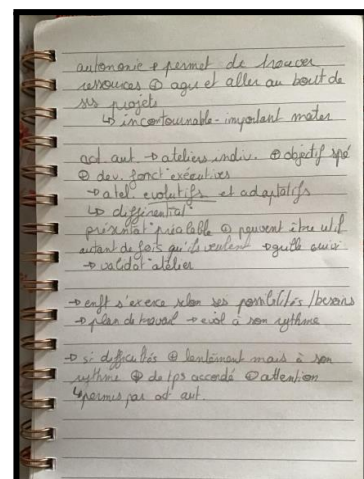 autonomie + permet de trouver
ressources ⊕ agir et aller au bout de
ses projets
↳ incontournable - important mater
act aut. → ateliers indiv. ⊕ objectif spé
⊕ dev. fonct° exécutives
→ atel. evolutifs et adaptatifs
↳ différentiat°
présentat° préalable ⊕ peuvent être util
autant de fois qu'ils veulent → grille suivi
→ validat° atelier
→ enft s'exerce selon ses possibilités / besoins
→ plan de travail → évol à son rythme
→ si difficultés ⊕ lentement mais à son
rythme ⊕ de tps accordé ⊕ attention
↳ permis par act aut.